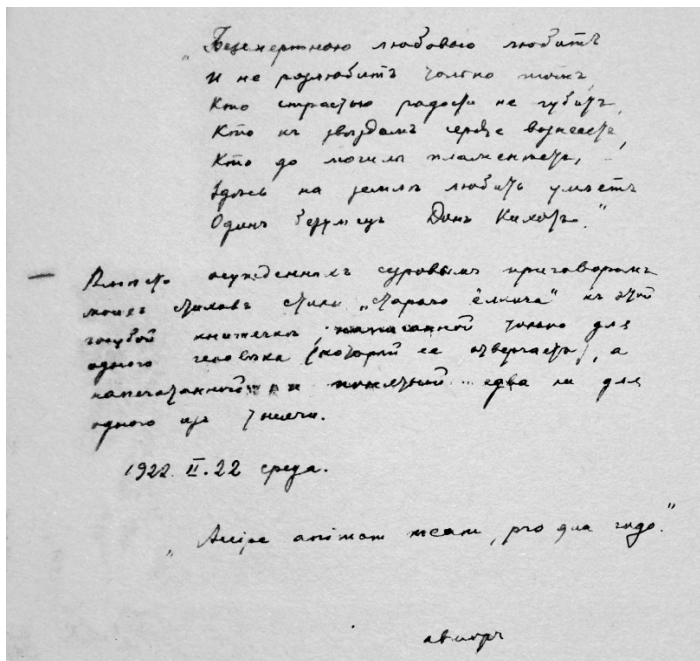 „Безсмертною любовью любитъ
И не разлюбитъ только тотъ,
Кто страстью радости не губитъ,
Кто къ звѣздамъ сердце вознесетъ,
Кто до могилы пламенѣетъ,
Здѣсь на землѣ любить умѣетъ
Одинъ безумецъ Донъ Кихотъ."
Вмѣсто осужденныхъ суровымъ приговоромъ
моихъ стиховъ стихи „стараго" къ этой
голубой книжечкѣ, написанной только для
одного человѣка (который ее отвергаетъ), а
напечатанной и понятной едва ли для
одного изъ тысячи.
1922. II. 22 среда.
„Accipe animam meam, pro qua
авторъ